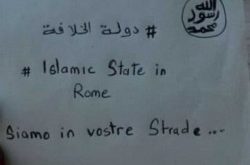 # دولة الخلافة
الله
رسول
محمد
# Islamic State in
Rome
Siamo in vostre Strade...